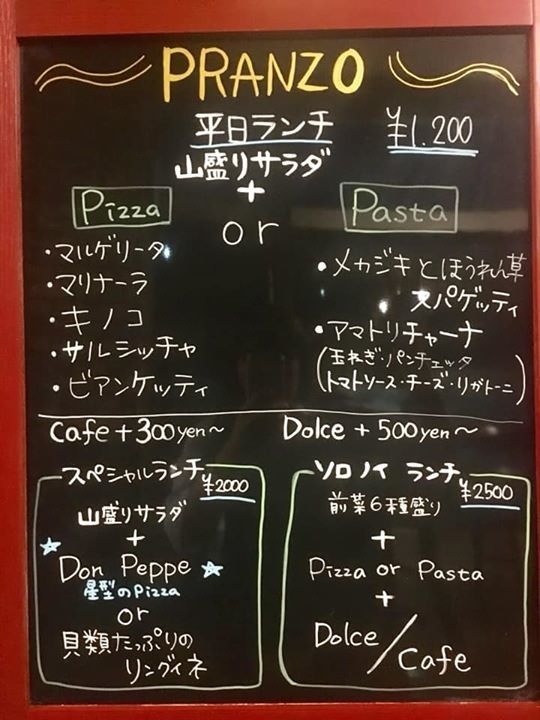 PRANZO
平日ランチ ¥1.200
山盛りサラダ
+
Pizza or Pasta
・マルゲリータ
・マリナーラ
・キノコ
・サルシッチャ
・ビアンケッティ
・メカジキとほうれん草
スパゲッティ
・アマトリチャーナ
(玉ねぎ・パンチェッタ
トマトソース・チーズ・リガトーニ)
Cafe + 300yen〜
Dolce + 500yen〜
スペシャルランチ ¥2000
山盛りサラダ
+
Don Peppe
星型のPizza
or
貝類たっぷりの
リングイネ
ソロノイ ランチ ¥2500
前菜6種盛り
+
Pizza or Pasta
+
Dolce/Cafe